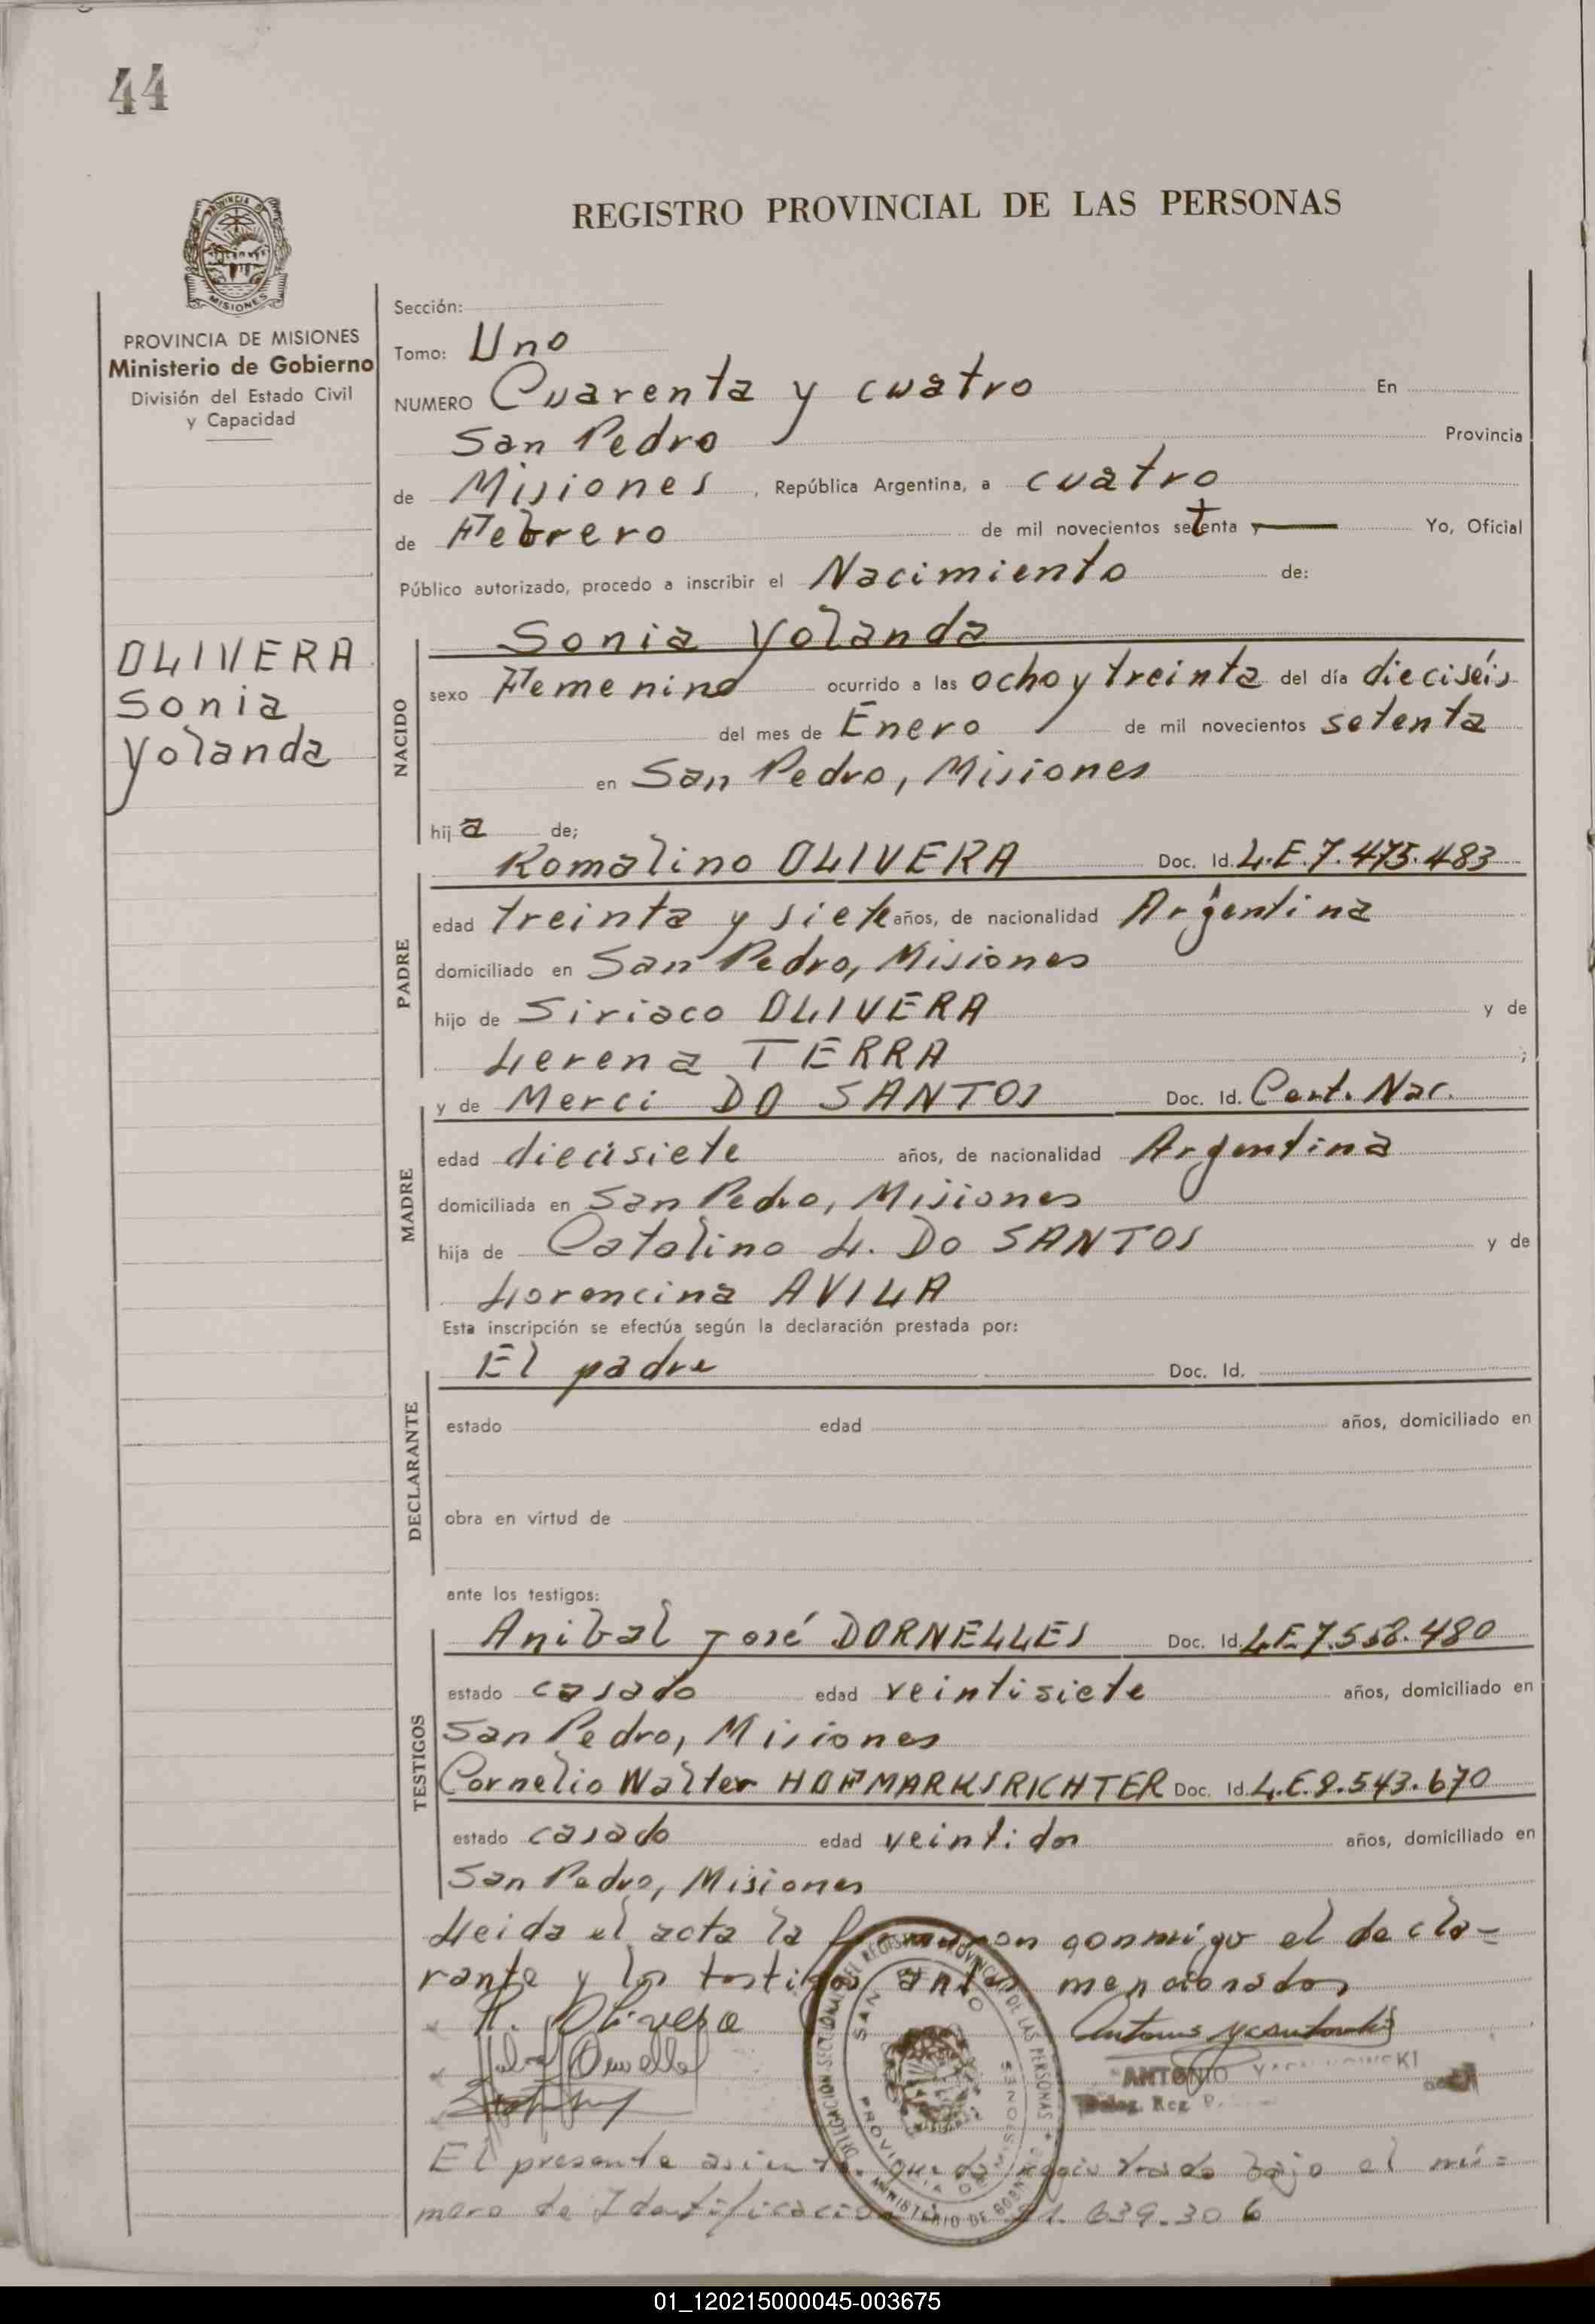 44
REGISTRO PROVINCIAL DE LAS PERSONAS
PROVINCIA DE MISIONES
Ministerio de Gobierno
División del Estado Civil
y Capacidad
OLIVERA
Sonia
Yolanda
Sección:
Tomo: Uno
NUMERO Cuarenta y cuatro En
San Pedro Provincia
de Misiones, República Argentina, a cuatro
de Febrero de mil novecientos setenta y Yo, Oficial
Público autorizado, procedo a inscribir el Nacimiento de:
NACIDO
Sonia Yolanda
sexo Femenino ocurrido a las ocho y treinta del día dieciséis
del mes de Enero de mil novecientos setenta
en San Pedro, Misiones
hija de;
PADRE
Romalino OLIVERA Doc. Id. L.E.7.475.483
edad treinta y siete años, de nacionalidad Argentina
domiciliado en San Pedro, Misiones
hijo de Siriaco OLIVERA y de
Lerena TERRA ;
MADRE
y de Merci DO SANTOS Doc. Id. Cert. Nac.
edad diecisiete años, de nacionalidad Argentina
domiciliada en San Pedro, Misiones
hija de Catalino L. DO SANTOS y de
Lorencina AVILA
Esta inscripción se efectúa según la declaración prestada por:
DECLARANTE
El padre Doc. Id.
estado edad años, domiciliado en
obra en virtud de
ante los testigos:
TESTIGOS
Anibal José DORNELLES Doc. Id. L.E.7.558.480
estado casado edad veintisiete años, domiciliado en
San Pedro, Misiones
Cornelio Walter HOFMARKSRICHTER Doc. Id. L.E.8.543.670
estado casado edad veintidos años, domiciliado en
San Pedro, Misiones
Leida el acta la firmaron conmigo el decla=
rante y los testigos antes mencionados
R. Olivera
ANTONIO
El presente asiento queda registrado bajo el nú=
mero de Identificación 21.639.306
01_120215000045-003675